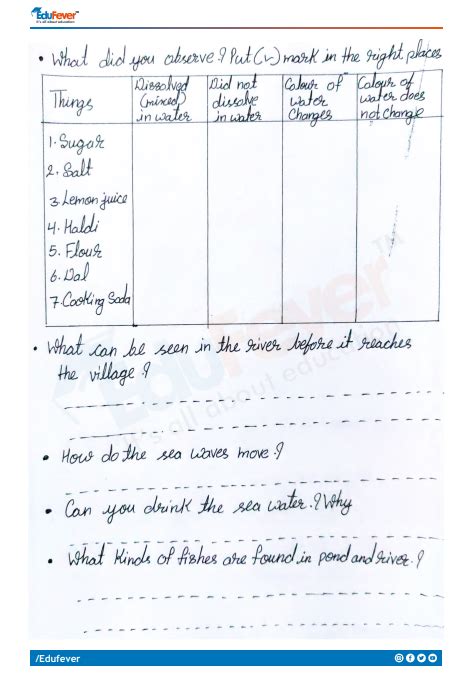 EduFever
It's all about education
• What did you observe? Put (✓) mark in the right places
Things
Dissolved (mixed) in water
Did not dissolve in water
Colour of water Changes
Colour of water does not change
1. Sugar
2. Salt
3. Lemon juice
4. Haldi
5. Flour
6. Dal
7. Cooking Soda
• What can be seen in the river before it reaches
the village?
• How do the sea waves move?
• Can you drink the sea water? Why
• What kinds of fishes are found in pond and river?
EduFever
IN
It's all about education
/Edufever